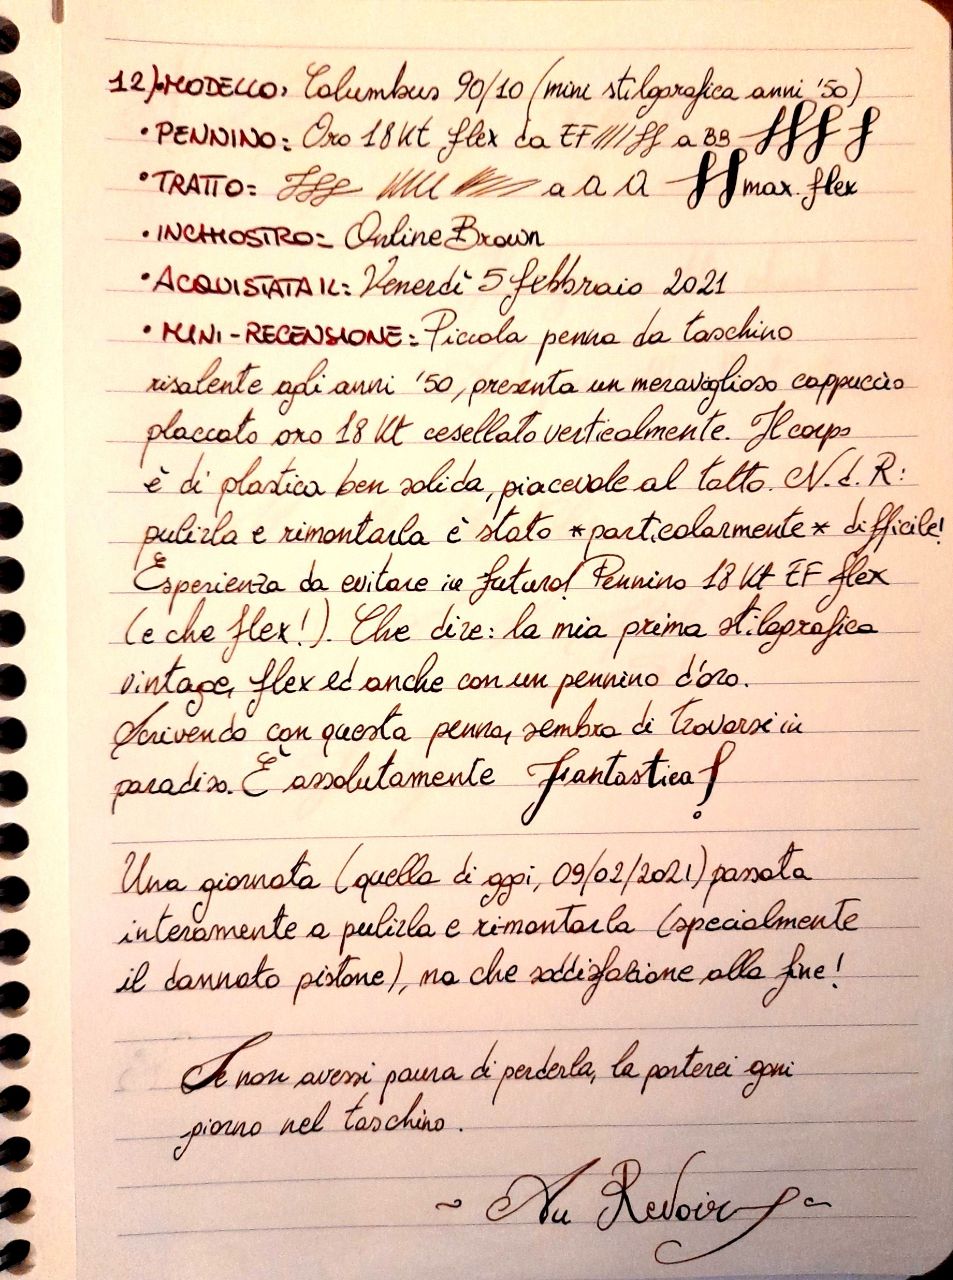 12) • MODELLO: Columbus 90/10 (mini stilografica anni '50)
• PENNINO: Oro 18 Kt flex da EF //// ff a BB ffff
• TRATTO: fff //// //// a a a ff max. flex
• INCHIOSTRO: Online Brown
• ACQUISTATA IL: Venerdì 5 febbraio 2021
• MINI-RECENSIONE: Piccola penna da taschino
risalente agli anni '50, presenta un meraviglioso cappuccio
placcato oro 18 Kt cesellato verticalmente. Il corpo
è di plastica ben solida, piacevole al tatto. N.d.R:
pulirla e rimontarla è stato *particolarmente* difficile!
Esperienza da evitare in futuro! Pennino 18 Kt EF flex
(e che flex!). Che dire: la mia prima stilografica
vintage, flex ed anche con un pennino d'oro.
Scrivendo con questa penna, sembra di trovarsi in
paradiso. È assolutamente fantastica!
Una giornata (quella di oggi, 09/02/2021) passata
interamente a pulirla e rimontarla (specialmente
il dannato pistone), ma che soddisfazione alla fine!
Se non avessi paura di perderla, la porterei ogni
giorno nel taschino.
~ Au Revoir ~